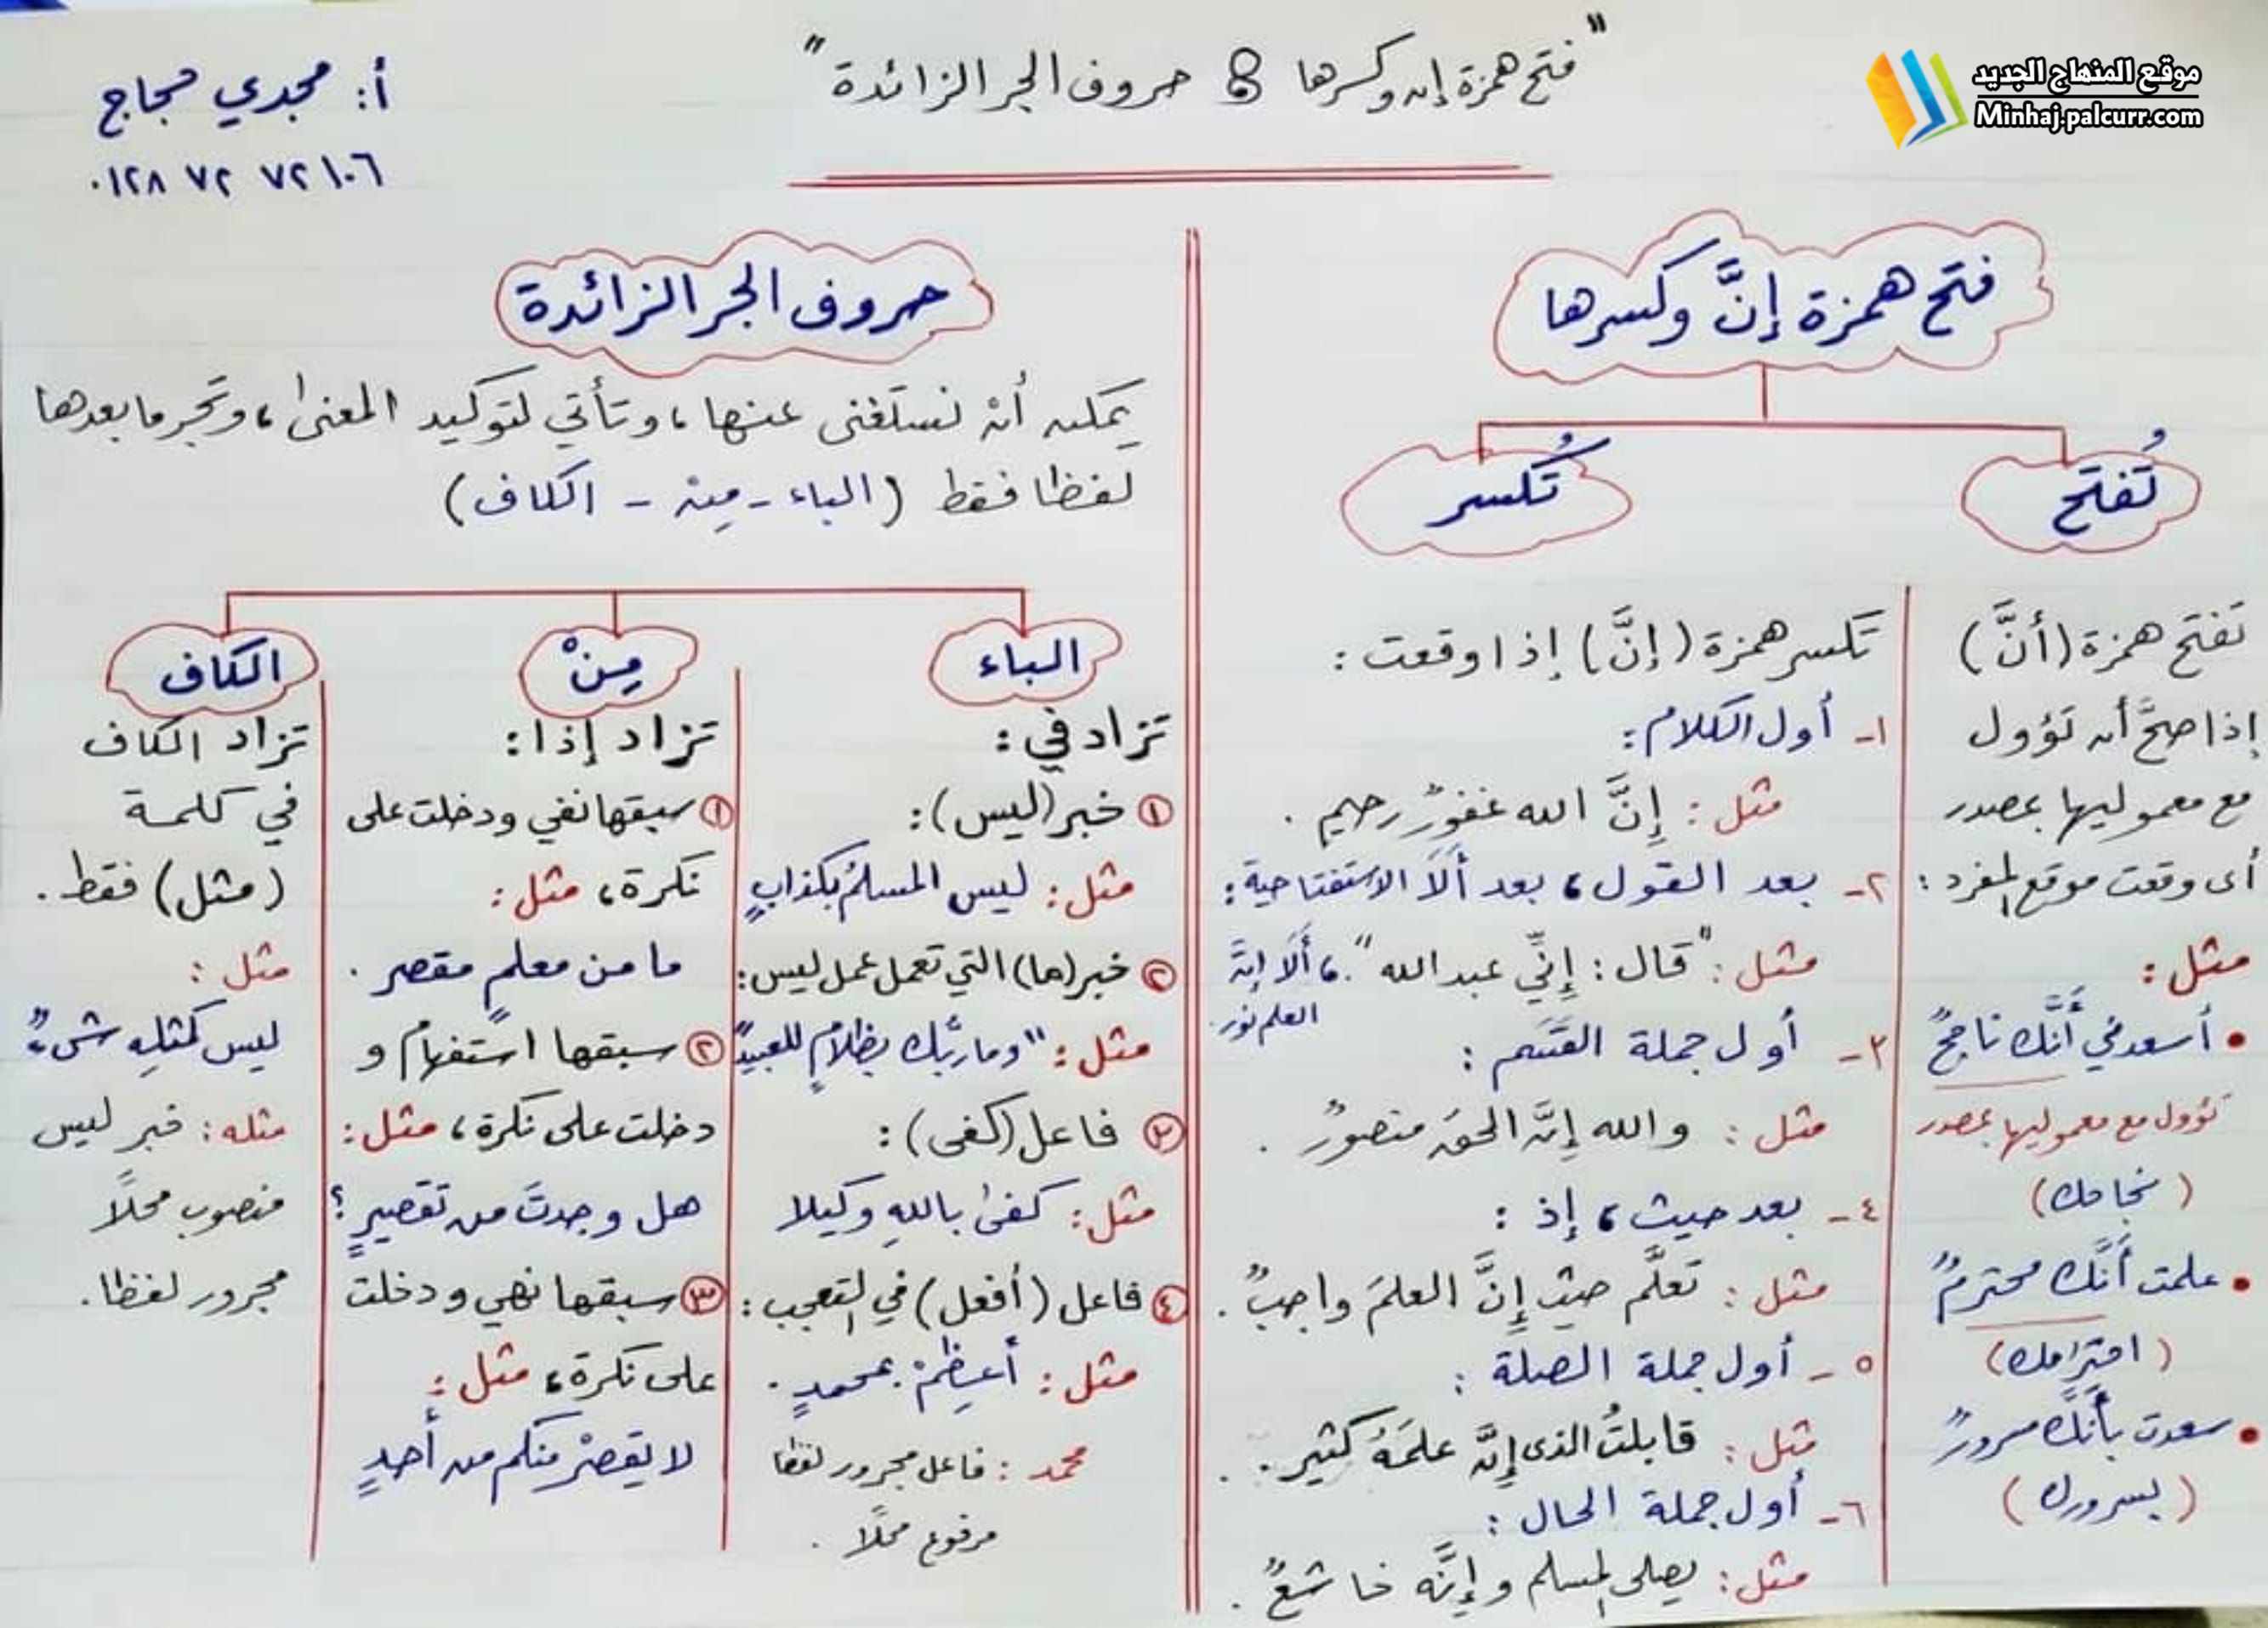 "فتح همزة إن وكسرها 8 حروف الجر الزائدة"
موقع المنهاج الجديد
Minhaj.palcurr.com
أ: مجدي حجاج
٠١٢٨ ٧٢ ٧٢ ١٠٦
فتح همزة إنَّ وكسرها
تُفتح
تفتح همزة (أنَّ)
إذا صحَّ أن تؤول
مع معموليها بمصدر
أى وقعت موقع المفرد:
مثل:
• أسعدني أَنَّك ناجحٌ
تؤول مع معموليها بمصدر
(نجاحك)
• علمت أَنَّك محترمٌ
(احترامك)
• سعدت بأَنَّك مسرورٌ
(بسرورك)
تُكسر
تكسر همزة (إنَّ) إذا وقعت:
١- أول الكلام:
مثل: إِنَّ الله غفورٌ رحيم.
٢- بعد القول، بعد أَلَا الاستفتاحية:
مثل: "قال: إِنِّي عبد الله". ، أَلَا إنَّ
العلم نور.
٣- أول جملة القَسَم:
مثل: والله إِنَّ الحقَ منصورٌ.
٤- بعد حيث، إذ:
مثل: تعلَّم حيث إِنَّ العلمَ واجبٌ.
٥- أول جملة الصلة:
مثل: قابلتُ الذى إِنَّ علمَهُ كثير.
٦- أول جملة الحال:
مثل: يصلى المسلم وإِنَّه خاشعٌ.
حروف الجر الزائدة
يمكن أنْ نستغنى عنها، وتأتي لتوكيد المعنى، وتجر ما بعدها
لفظا فقط (الباء - مِنْ - الكاف)
الباء
تزاد في:
① خبر (ليس):
مثل: ليس المسلمُ بكذابٍ
② خبر (ما) التي تعمل عمل ليس:
مثل: "وما ربُّك بظلامٍ للعبيد"
③ فاعل (كفى):
مثل: كفىٰ باللهِ وكيلا
④ فاعل (أفعل) في التعجب:
مثل: أعظِمْ بمحمدٍ.
محمد: فاعل مجرور لفظا
مرفوع محلًا.
مِنْ
تزاد إذا:
① سبقها نفي ودخلت على
نكرة، مثل:
ما من معلمٍ مقصر.
② سبقها استفهام و
دخلت على نكرة، مثل:
هل وجدتَ من تقصيرٍ؟
③ سبقها نهي ودخلت
على نكرة، مثل:
لا يقصرْ منكم من أحدٍ
الكاف
تزاد الكاف
في كلمة
(مثل) فقط.
مثل:
ليس كمثلِه شىءٌ
مثله: خبر ليس
منصوب محلًا
مجرور لفظا.